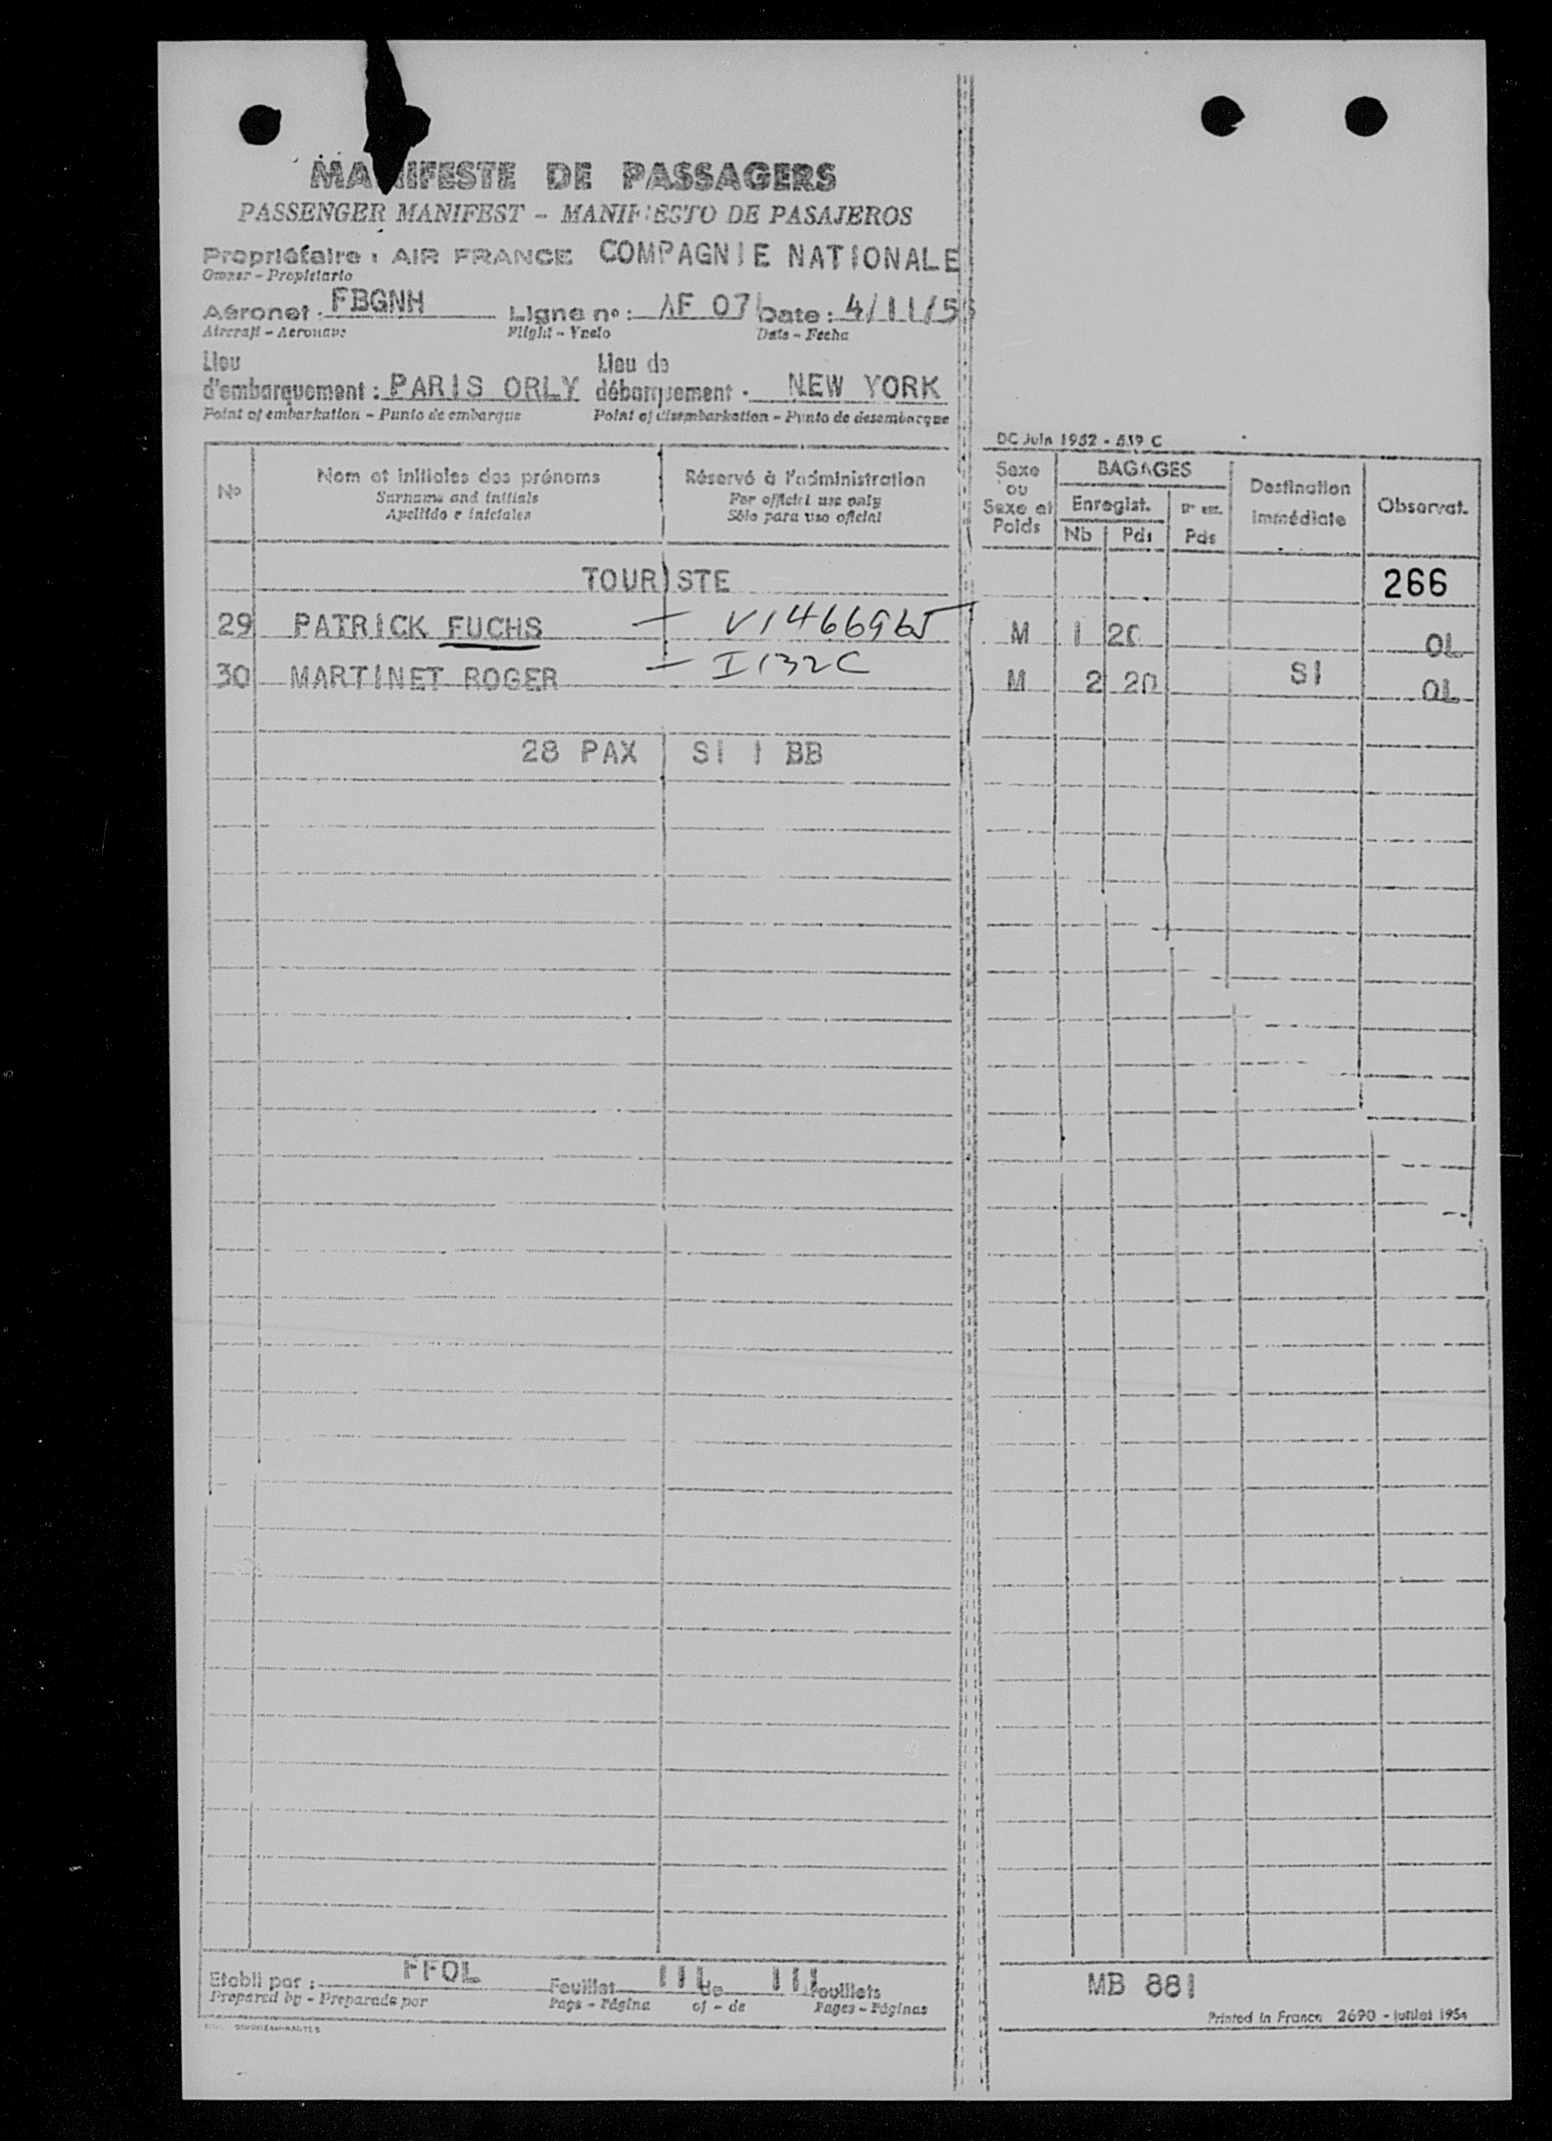 MANIFESTE DE PASSAGERS
PASSENGER MANIFEST - MANIFIESTO DE PASAJEROS
Propriétaire : AIR FRANCE COMPAGNIE NATIONALE
Owner - Propietario
Aéronef : FBGNH Ligne nº : AF 07 Date : 4/11/5
Aircraft - Aeronave Flight - Vuelo Date - Fecha
Lieu d'embarquement : PARIS ORLY Lieu de débarquement : NEW YORK
Point of embarkation - Punto de embarque Point of disembarkation - Punto de desembarque
DC Juin 1952 - 519 C
Nº Nom et initiales des prénoms Réservé à l'administration Sexe ou Sexe et Poids BAGAGES Enregist. Nb Pds Pds Destination immédiate Observat.
Surname and initials For official use only
Apellido e iniciales Sólo para uso oficial
TOURISTE 266
29 PATRICK FUCHS — V1466965 M 1 20 OL
30 MARTINET ROGER — I132C M 2 20 SI OL
28 PAX SI 1 BB
Etabli par : FFOL Feuillet III de III Feuillets MB 881
Prepared by - Preparado por Page - Página of - de Pages - Páginas
Printed in France 2690 - juillet 1954